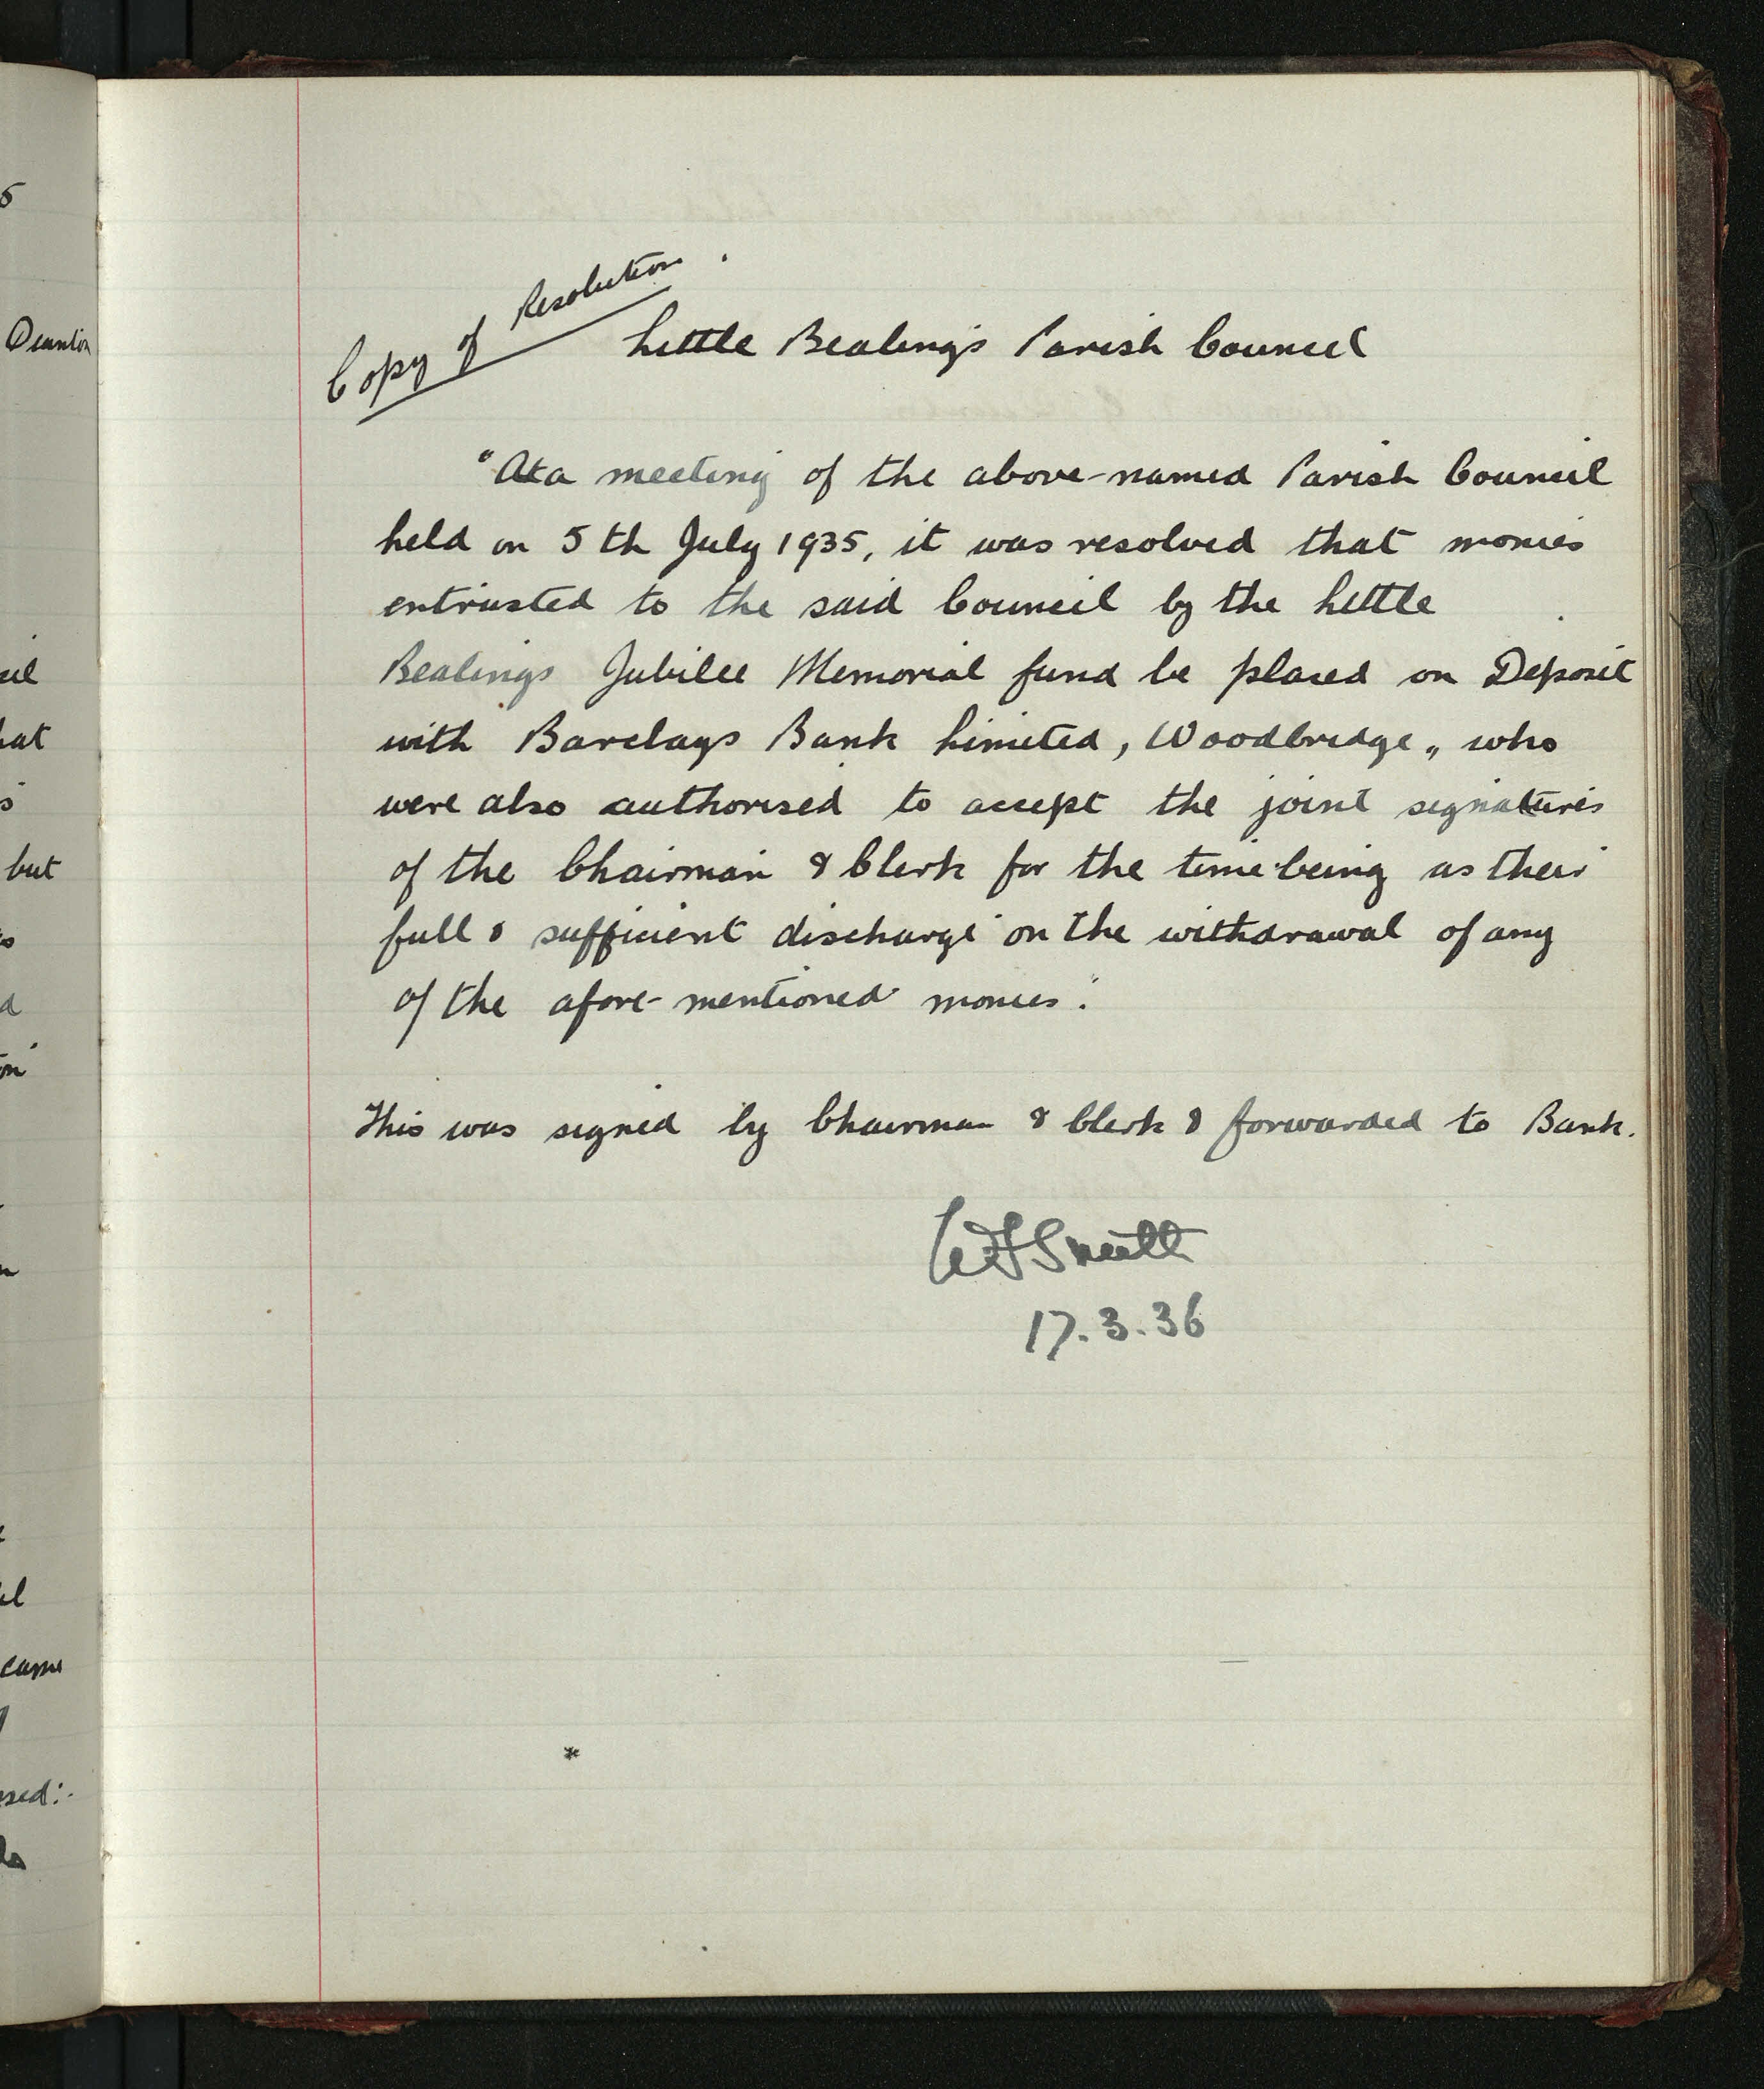 Copy of Resolution.
Little Bealings Parish Council
"At a meeting of the above-named Parish Council
held on 5th July 1935, it was resolved that monies
entrusted to the said Council by the Little
Bealings Jubilee Memorial fund be placed on Deposit
with Barclays Bank Limited, Woodbridge, who
were also authorised to accept the joint signatures
of the Chairman & Clerk for the time being as their
full & sufficient discharge on the withdrawal of any
of the afore-mentioned monies."
This was signed by Chairman & Clerk & forwarded to Bank.
Smith
17.3.36
but